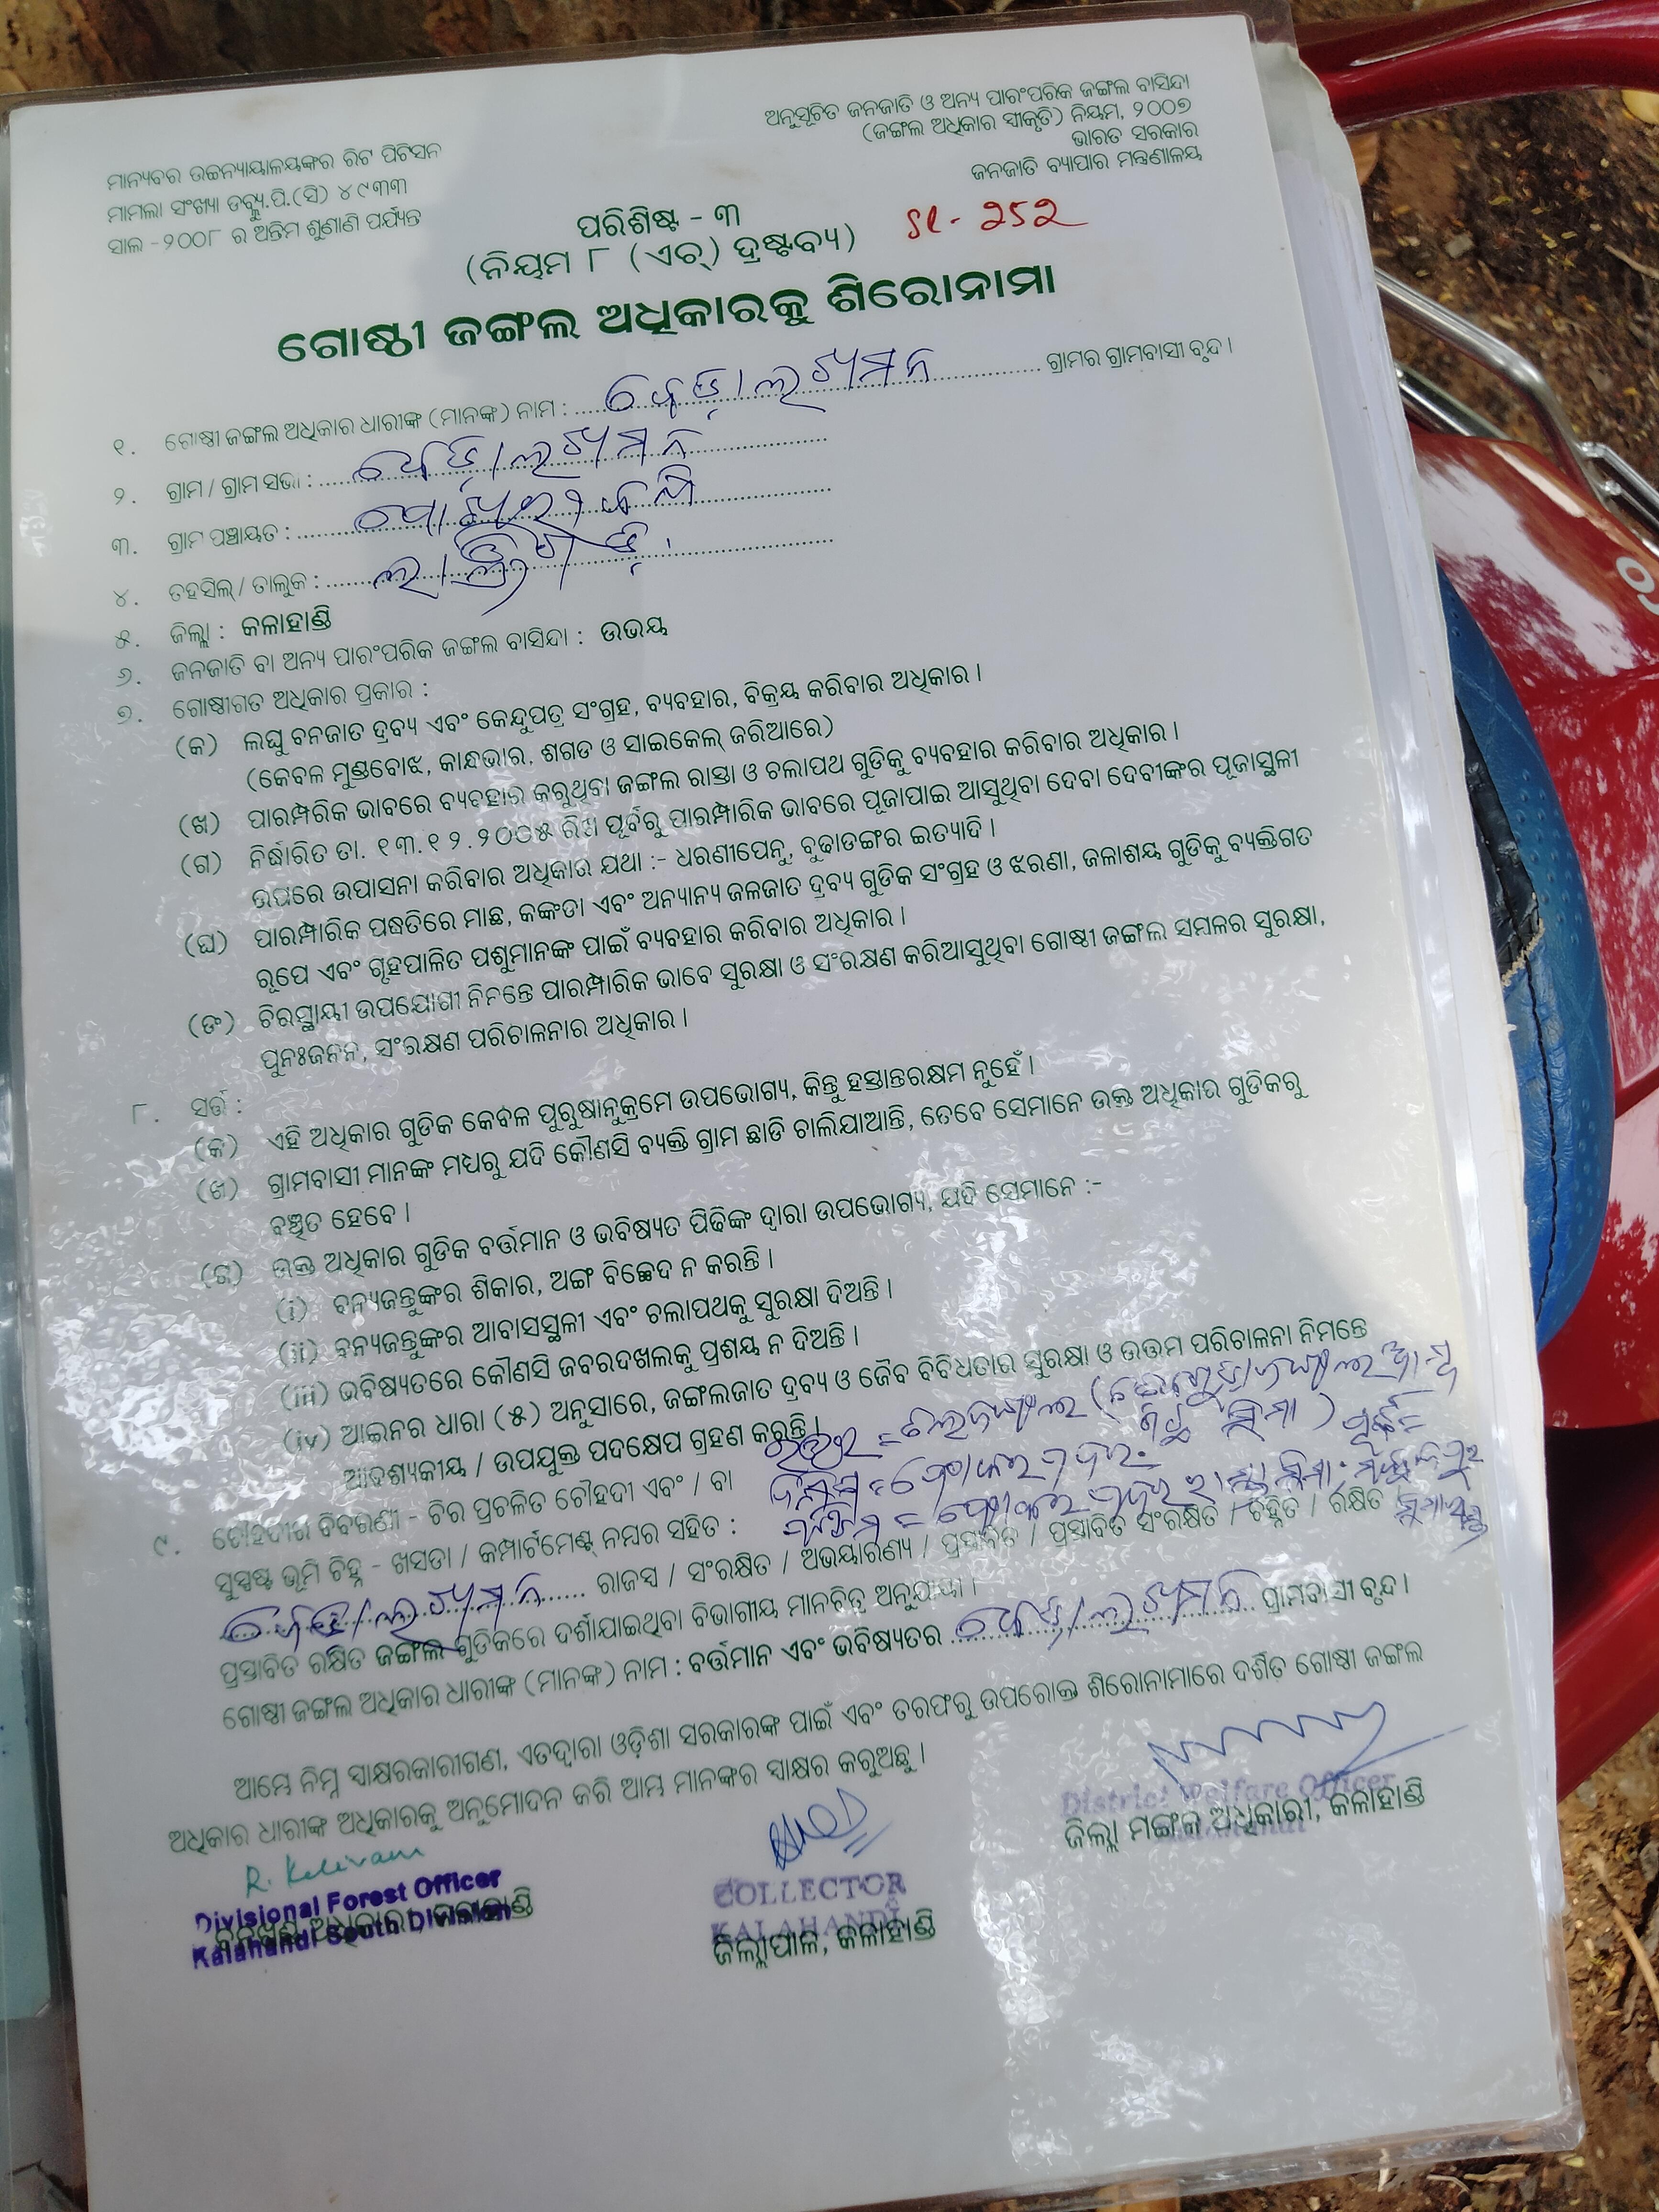 ଅନୁସୂଚିତ ଜନଜାତି ଓ ଅନ୍ୟ ପାରଂପରିକ ଜଙ୍ଗଲ ବାସିନ୍ଦା
(ଜଙ୍ଗଲ ଅଧିକାର ସ୍ୱୀକୃତି) ନିୟମ, ୨୦୦୭
ଭାରତ ସରକାର
ଜନଜାତି ବ୍ୟାପାର ମନ୍ତ୍ରଣାଳୟ
ମାନ୍ୟବର ଉଚ୍ଚନ୍ୟାୟାଳୟଙ୍କର ରିଟ ପିଟିସନ
ମାମଲା ସଂଖ୍ୟା ଡବ୍ଲ୍ୟୁ.ପି.(ସି) ୪୯୩୩
ସାଲ -୨୦୦୮ ର ଅନ୍ତିମ ଶୁଣାଣି ପର୍ଯ୍ୟନ୍ତ
ପରିଶିଷ୍ଟ - ୩
Sl - 252
(ନିୟମ ୮ (ଏଚ୍) ଦ୍ରଷ୍ଟବ୍ୟ)
ଗୋଷ୍ଠୀ ଜଙ୍ଗଲ ଅଧିକାରକୁ ଶିରୋନାମା
୧. ଗୋଷ୍ଠୀ ଜଙ୍ଗଲ ଅଧିକାର ଧାରୀଙ୍କ (ମାନଙ୍କ) ନାମ : ଗ୍ରାମର ଗ୍ରାମବାସୀ ବୃନ୍ଦ ।
୨. ଗ୍ରାମ / ଗ୍ରାମ ସଭା :
୩. ଗ୍ରାମ ପଞ୍ଚାୟତ :
୪. ତହସିଲ୍ / ତାଲୁକ :
୫. ଜିଲ୍ଲା : କଳାହାଣ୍ଡି
୬. ଜନଜାତି ବା ଅନ୍ୟ ପାରଂପରିକ ଜଙ୍ଗଲ ବାସିନ୍ଦା : ଉଭୟ
୭. ଗୋଷ୍ଠୀଗତ ଅଧିକାର ପ୍ରକାର :
(କ) ଲଘୁ ବନଜାତ ଦ୍ରବ୍ୟ ଏବଂ କେନ୍ଦୁପତ୍ର ସଂଗ୍ରହ, ବ୍ୟବହାର, ବିକ୍ରୟ କରିବାର ଅଧିକାର ।
(କେବଳ ମୁଣ୍ଡବୋଝ, କାନ୍ଧଭାର, ଶଗଡ ଓ ସାଇକେଲ୍ ଜରିଆରେ)
(ଖ) ପାରମ୍ପରିକ ଭାବରେ ବ୍ୟବହାର କରୁଥିବା ଜଙ୍ଗଲ ରାସ୍ତା ଓ ଚଲାପଥ ଗୁଡିକୁ ବ୍ୟବହାର କରିବାର ଅଧିକାର ।
(ଗ) ନିର୍ଦ୍ଧାରିତ ତା. ୧୩.୧୨.୨୦୦୫ ରିଖ ପୂର୍ବରୁ ପାରମ୍ପାରିକ ଭାବରେ ପୂଜାପାଇ ଆସୁଥିବା ଦେବା ଦେବୀଙ୍କର ପୂଜାସ୍ଥଳୀ
ଉପରେ ଉପାସନା କରିବାର ଅଧିକାର ଯଥା :- ଧରଣୀପେନୁ, ବୁଢାଡଙ୍ଗର ଇତ୍ୟାଦି ।
(ଘ) ପାରମ୍ପାରିକ ପଦ୍ଧତିରେ ମାଛ, କଙ୍କଡା ଏବଂ ଅନ୍ୟାନ୍ୟ ଜଳଜାତ ଦ୍ରବ୍ୟ ଗୁଡିକ ସଂଗ୍ରହ ଓ ଝରଣା, ଜଳାଶୟ ଗୁଡିକୁ ବ୍ୟକ୍ତିଗତ
ରୂପେ ଏବଂ ଗୃହପାଳିତ ପଶୁମାନଙ୍କ ପାଇଁ ବ୍ୟବହାର କରିବାର ଅଧିକାର ।
(ଙ) ଚିରସ୍ଥାୟୀ ଉପଯୋଗୀ ନିମନ୍ତେ ପାରମ୍ପାରିକ ଭାବେ ସୁରକ୍ଷା ଓ ସଂରକ୍ଷଣ କରିଆସୁଥିବା ଗୋଷ୍ଠୀ ଜଙ୍ଗଲ ସମ୍ବଳର ସୁରକ୍ଷା,
ପୁନଃଜନନ, ସଂରକ୍ଷଣ ପରିଚାଳନାର ଅଧିକାର ।
୮. ସର୍ତ୍ତ :
(କ) ଏହି ଅଧିକାର ଗୁଡିକ କେବଳ ପୁରୁଷାନୁକ୍ରମେ ଉପଭୋଗ୍ୟ, କିନ୍ତୁ ହସ୍ତାନ୍ତରକ୍ଷମ ନୁହେଁ ।
(ଖ) ଗ୍ରାମବାସୀ ମାନଙ୍କ ମଧ୍ୟରୁ ଯଦି କୌଣସି ବ୍ୟକ୍ତି ଗ୍ରାମ ଛାଡି ଚାଲିଯାଆନ୍ତି, ତେବେ ସେମାନେ ଉକ୍ତ ଅଧିକାର ଗୁଡିକରୁ
ବଞ୍ଚିତ ହେବେ ।
(ଗ) ଉକ୍ତ ଅଧିକାର ଗୁଡିକ ବର୍ତ୍ତମାନ ଓ ଭବିଷ୍ୟତ ପିଢିଙ୍କ ଦ୍ୱାରା ଉପଭୋଗ୍ୟ, ଯଦି ସେମାନେ :-
(i) ବନ୍ୟଜନ୍ତୁଙ୍କର ଶିକାର, ଅଙ୍ଗ ବିଚ୍ଛେଦ ନ କରନ୍ତି ।
(ii) ବନ୍ୟଜନ୍ତୁଙ୍କର ଆବାସସ୍ଥଳୀ ଏବଂ ଚଲାପଥକୁ ସୁରକ୍ଷା ଦିଅନ୍ତି ।
(iii) ଭବିଷ୍ୟତରେ କୌଣସି ଜବରଦଖଲକୁ ପ୍ରଶୟ ନ ଦିଅନ୍ତି ।
(iv) ଆଇନର ଧାରା (୫) ଅନୁସାରେ, ଜଙ୍ଗଲଜାତ ଦ୍ରବ୍ୟ ଓ ଜୈବ ବିବିଧତାର ସୁରକ୍ଷା ଓ ଉତ୍ତମ ପରିଚାଳନା ନିମନ୍ତେ
ଆବଶ୍ୟକୀୟ / ଉପଯୁକ୍ତ ପଦକ୍ଷେପ ଗ୍ରହଣ କରନ୍ତି ।
୯. ଚୌହଦୀର ବିବରଣୀ - ଚିର ପ୍ରଚଳିତ ଚୌହଦୀ ଏବଂ / ବା
ସୁସ୍ପଷ୍ଟ ଭୂମି ଚିହ୍ନ - ଖସଡା / କମ୍ପାର୍ଟମେଣ୍ଟ୍ ନମ୍ବର ସହିତ :
ରାଜସ୍ୱ / ସଂରକ୍ଷିତ / ଅଭୟାରଣ୍ୟ / ପ୍ରସ୍ତାବିତ / ପ୍ରସ୍ତାବିତ ସଂରକ୍ଷିତ / ଚିହ୍ନିତ / ରକ୍ଷିତ
ପ୍ରସ୍ତାବିତ ରକ୍ଷିତ ଜଙ୍ଗଲ ଗୁଡିକରେ ଦର୍ଶାଯାଇଥିବା ବିଭାଗୀୟ ମାନଚିତ୍ର ଅନୁଯାୟୀ ।
ଗୋଷ୍ଠୀ ଜଙ୍ଗଲ ଅଧିକାର ଧାରୀଙ୍କ (ମାନଙ୍କ) ନାମ : ବର୍ତ୍ତମାନ ଏବଂ ଭବିଷ୍ୟତର ଗ୍ରାମବାସୀ ବୃନ୍ଦ ।
ଆମ୍ଭେ ନିମ୍ନ ସ୍ୱାକ୍ଷରକାରୀଗଣ, ଏତଦ୍ଦ୍ୱାରା ଓଡ଼ିଶା ସରକାରଙ୍କ ପାଇଁ ଏବଂ ତରଫରୁ ଉପରୋକ୍ତ ଶିରୋନାମାରେ ଦର୍ଶିତ ଗୋଷ୍ଠୀ ଜଙ୍ଗଲ
ଅଧିକାର ଧାରୀଙ୍କ ଅଧିକାରକୁ ଅନୁମୋଦନ କରି ଆମ୍ଭ ମାନଙ୍କର ସ୍ୱାକ୍ଷର କରୁଅଛୁ ।
District Welfare Officer
ଜିଲ୍ଲା ମଙ୍ଗଳ ଅଧିକାରୀ, କଳାହାଣ୍ଡି
Divisional Forest Officer
Kalahandi South Division
COLLECTOR
KALAHANDI
ଜିଲ୍ଲାପାଳ, କଳାହାଣ୍ଡି